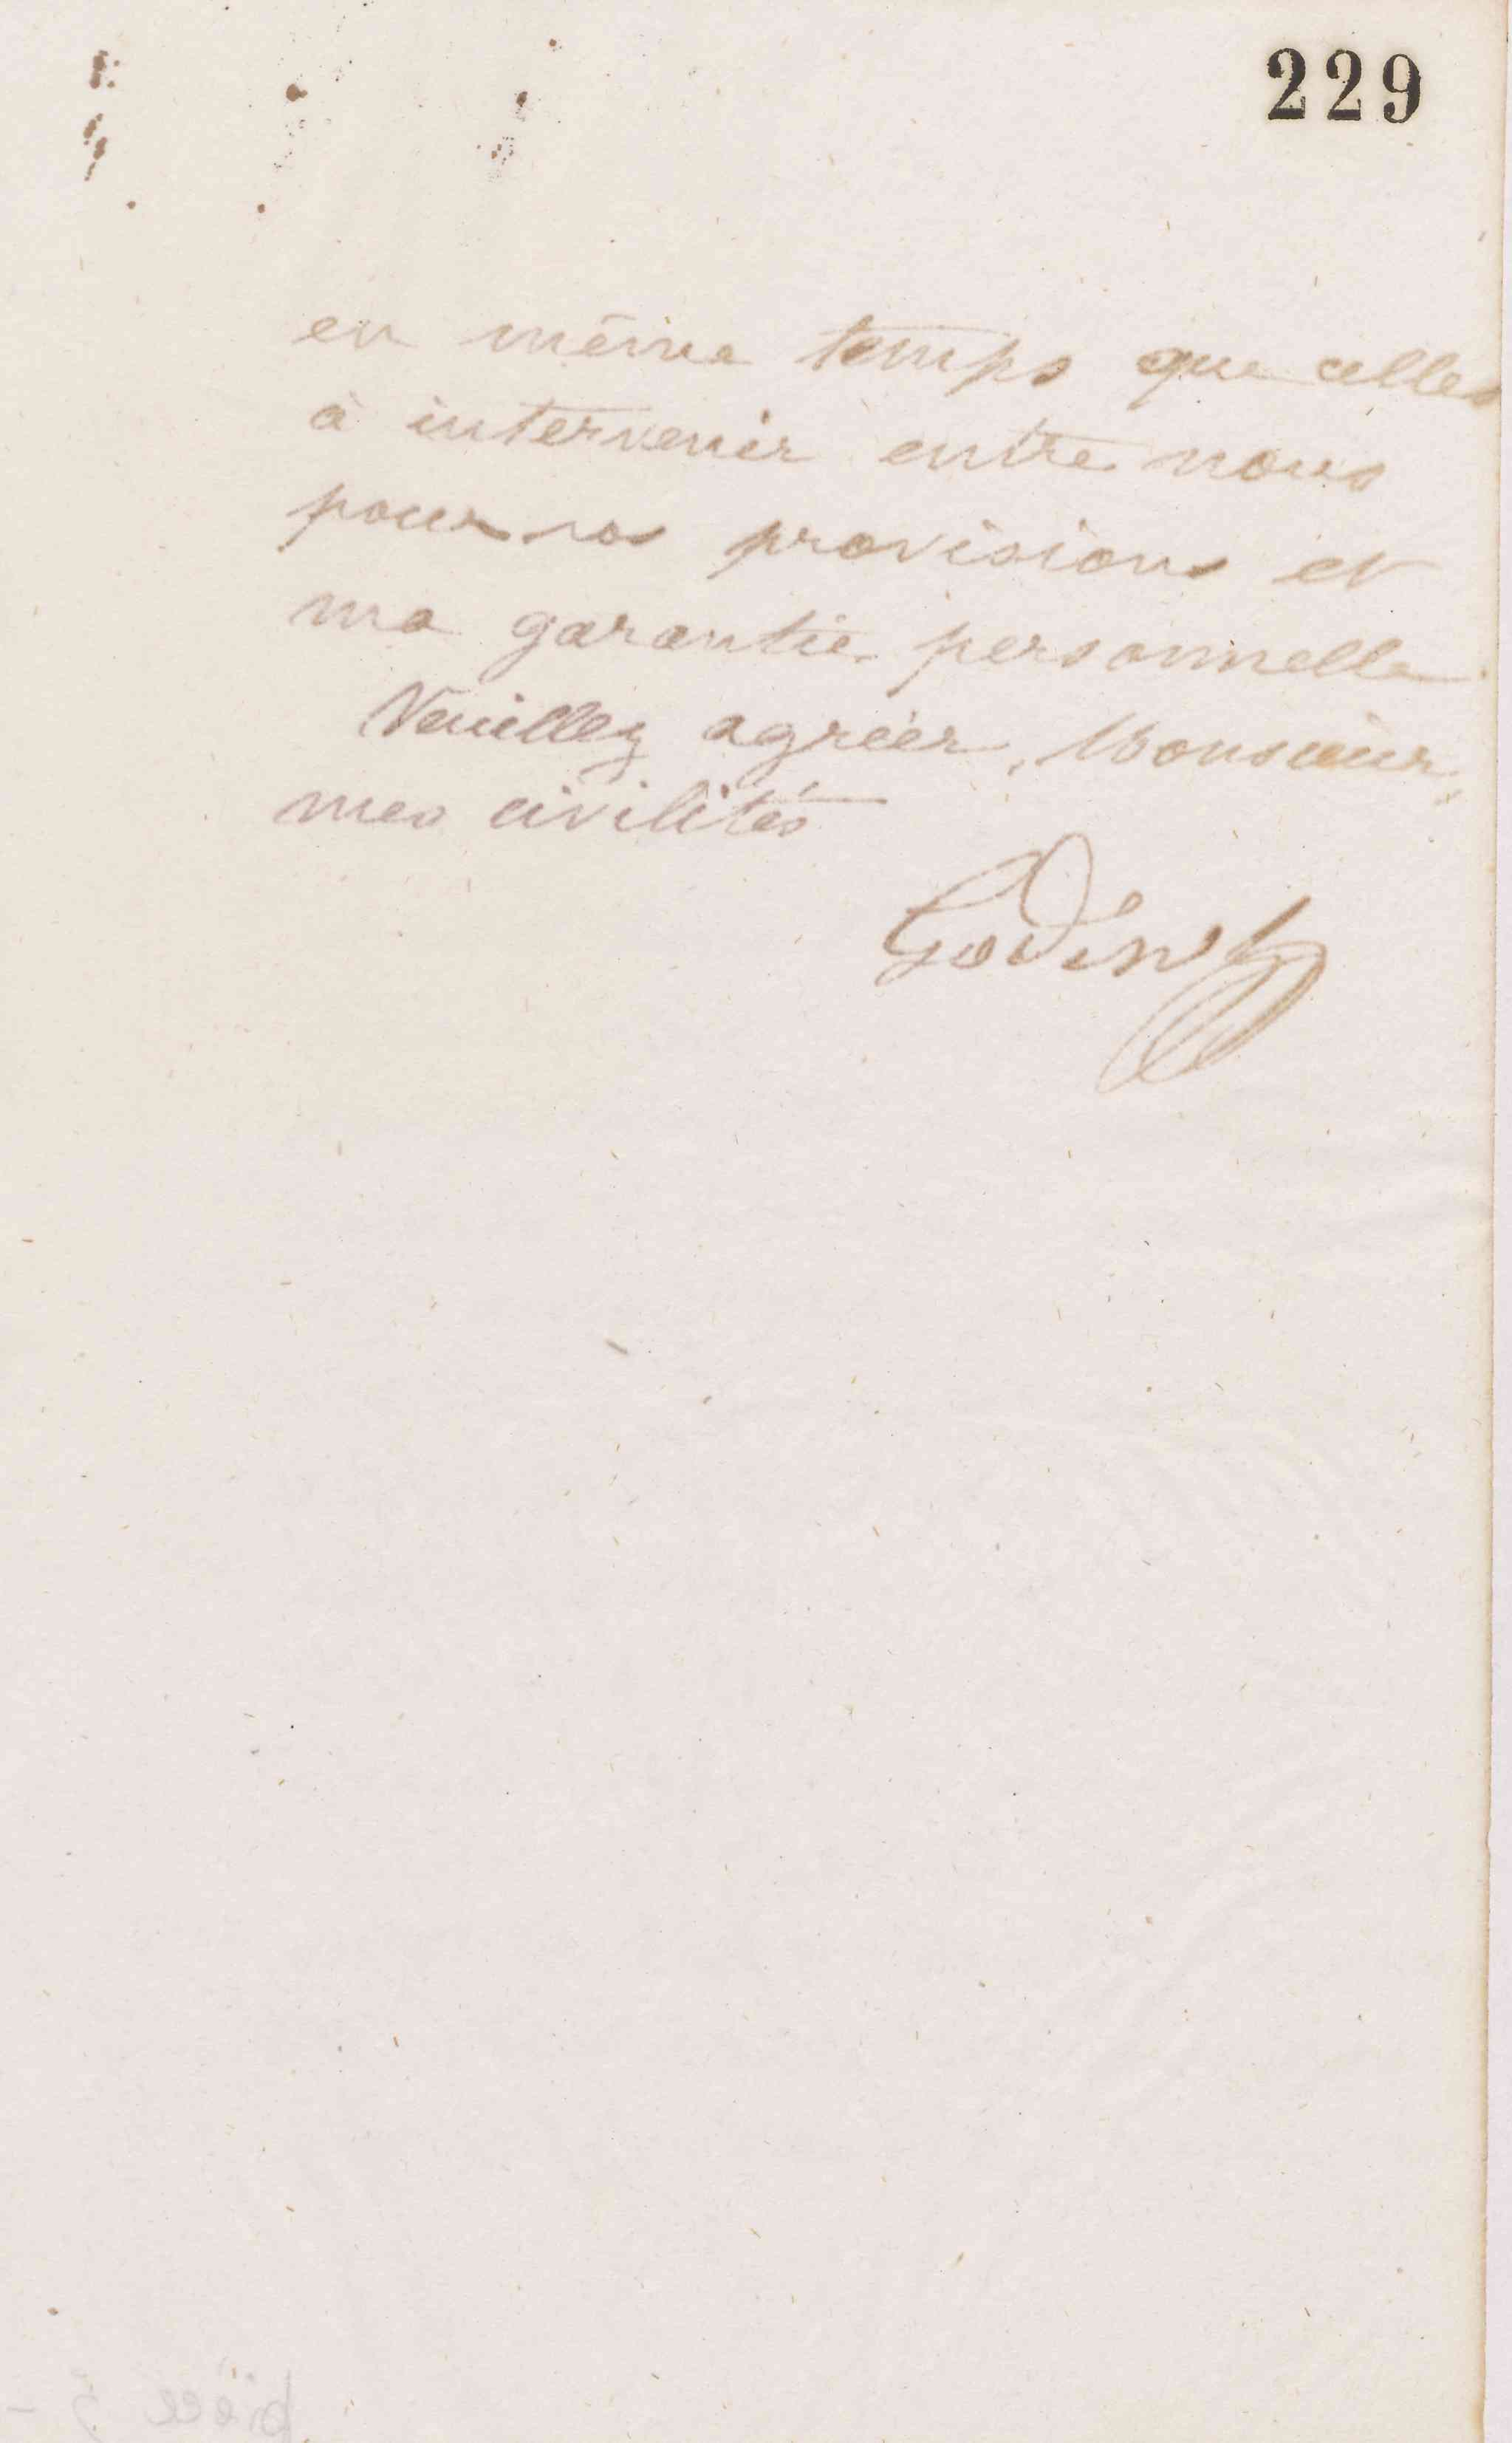 229
en même temps que celles
à intervenir entre nous
pour vos provisions et
ma garantie personnelle
Veuillez agréer, Monsieur,
mes civilités
Godin